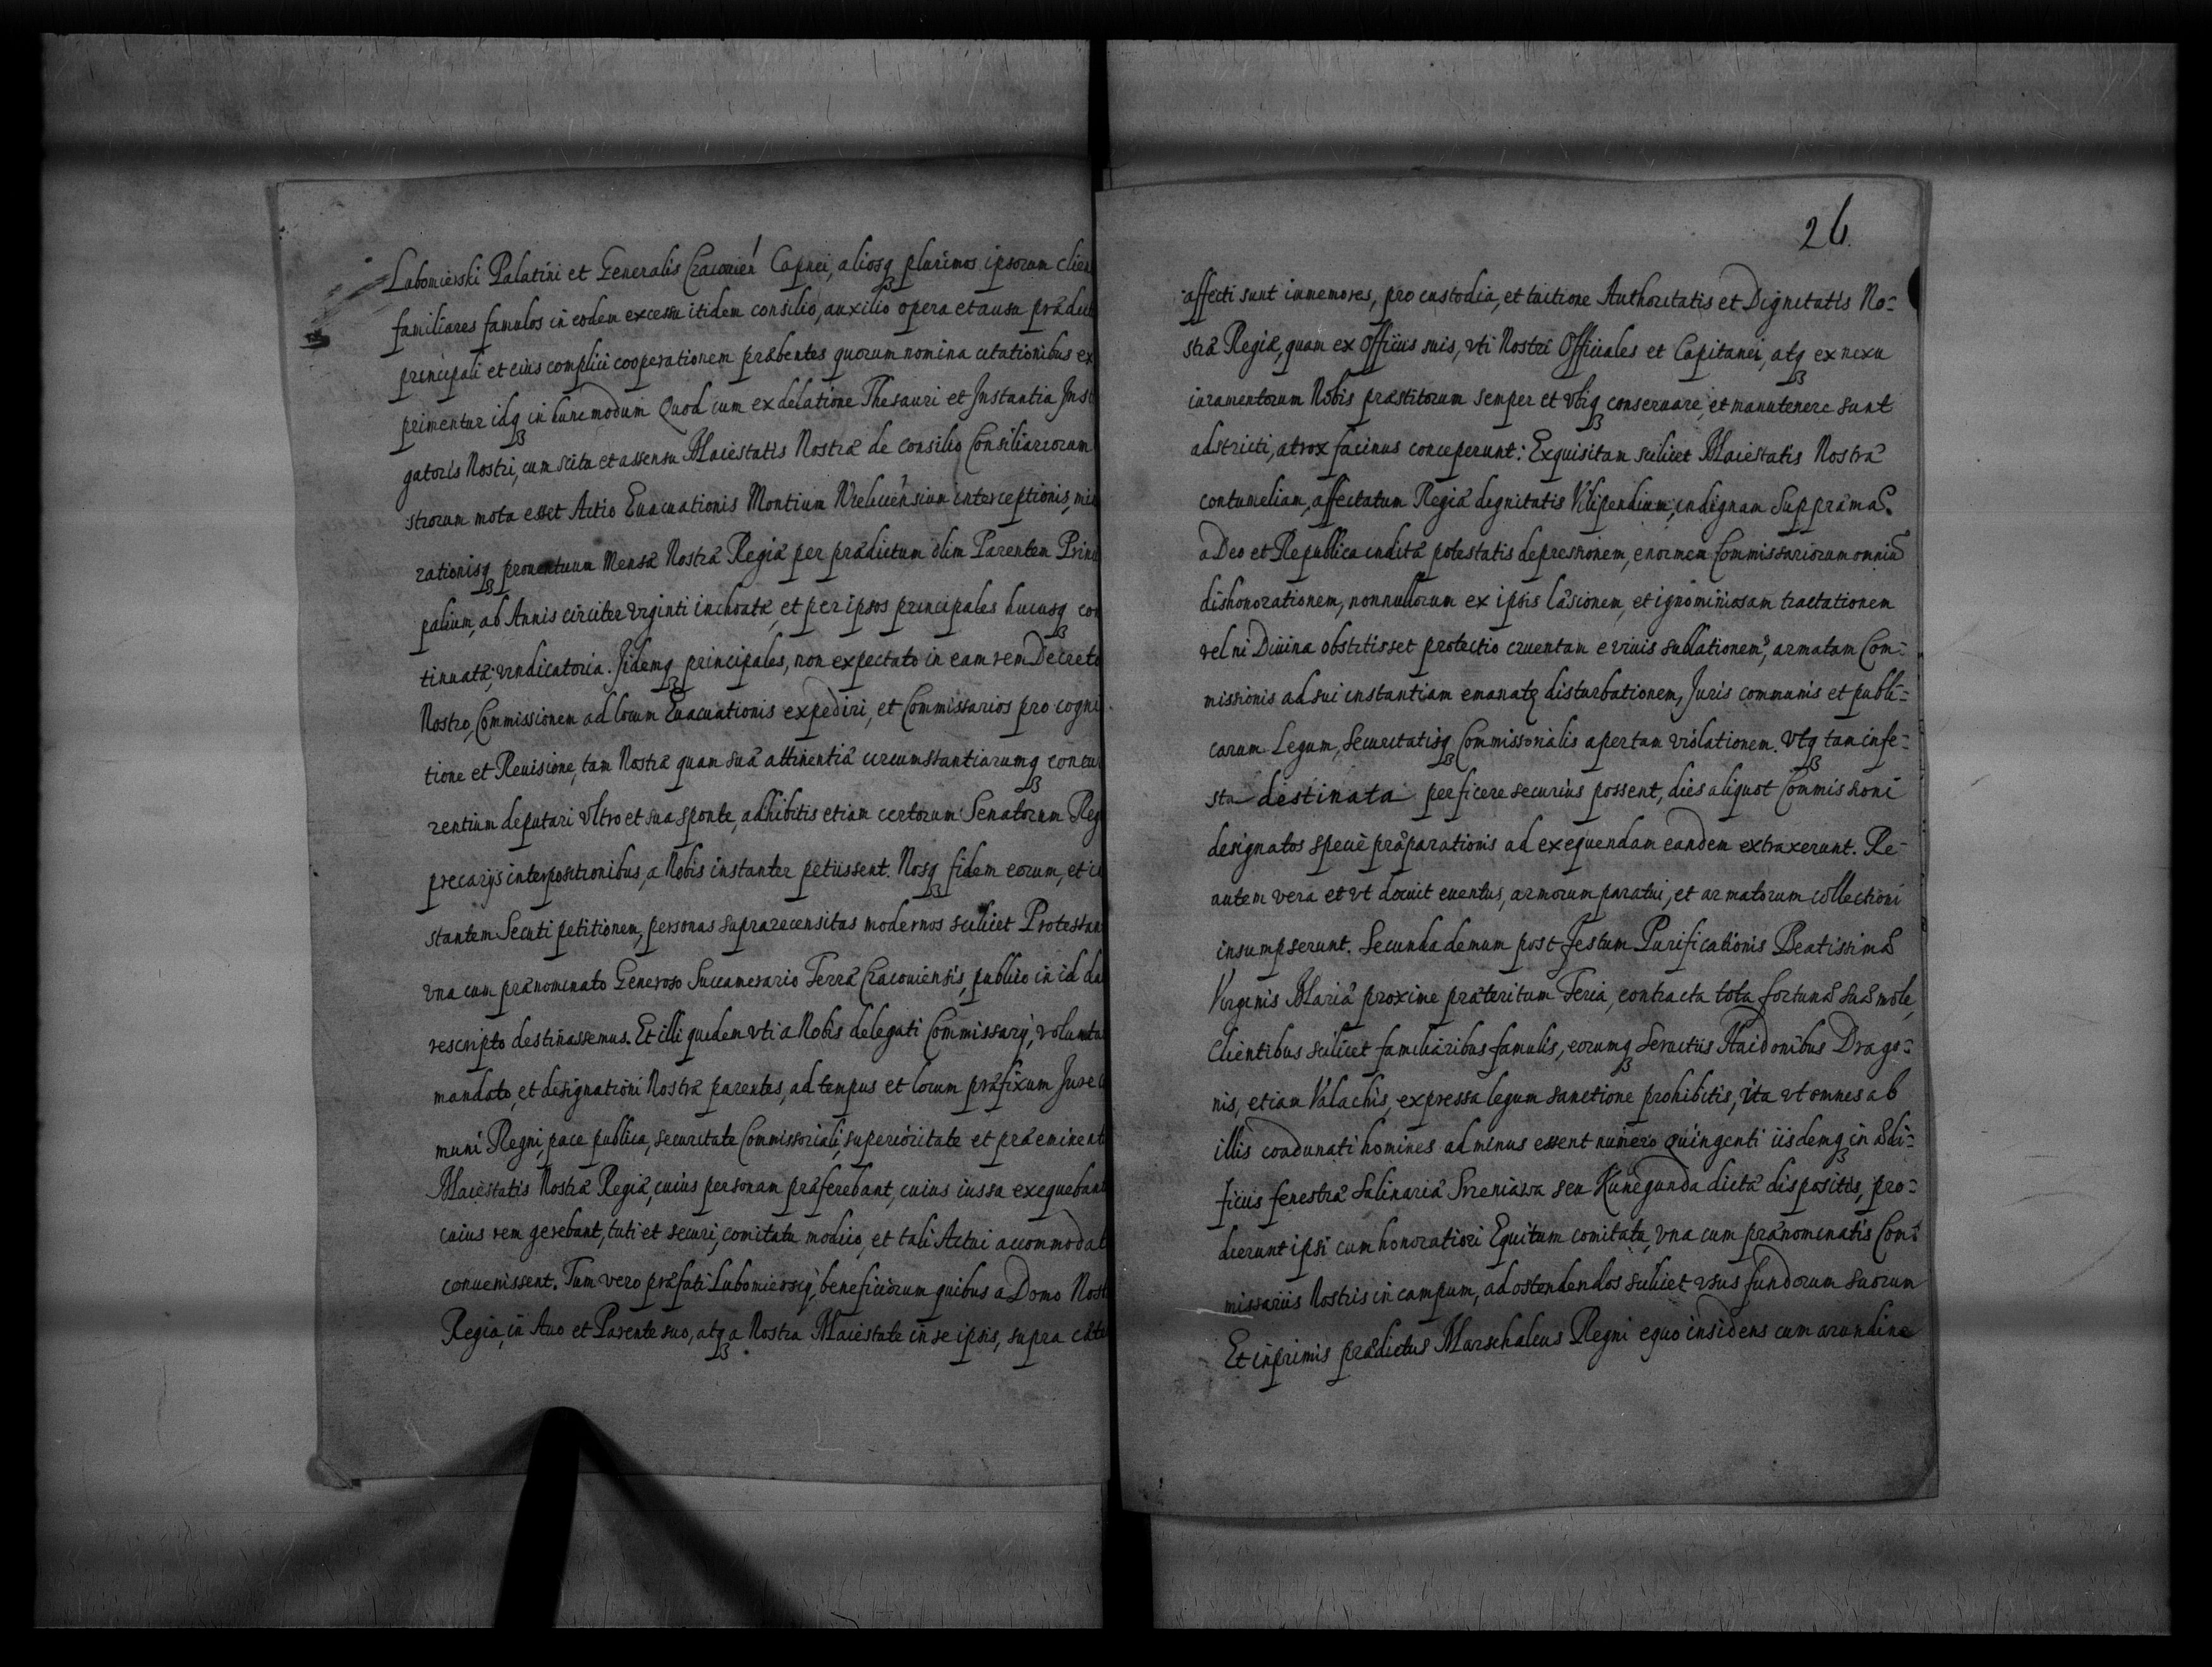 Lubomierski Palatini et Generalis Cracouień Capnei, aliosq3 plurimos ipsorum clien
familiares famulos in eodem excessu itidem consilio, auxilio opera et ausu prædict
principali et eius complici cooperationem præbentes quorum nomina citationibus ex
primentur idq3 in hunc modum Quod cum ex delatione Thesauri et Instantia Inst
gatoris Nostri, cum scitu et assensu Maiestatis Nostræ de consilio Consiliariorum
strorum mota esset Actio Euacuationis Montium Vieliciensium interceptionis,
rationisq3 prouentuum Mensæ Nostræ Regiæ per prædictum olim Parentem Princi
palium, ab Annis circiter viginti inchoatæ, et per ipsos principales hucusq3 con
tinuatæ, vindicatoria. Iidemq3 principales, non expectato in eam rem Decreto
Nostro, Commissionem ad locum Euacuationis expediri, et Commissarios pro cogni
tione et Reuisione, tam Nostræ quam suæ attinentiæ circumstantiarumq3 concu
rentium deputari vltro et sua sponte, adhibitis etiam certorum Senatorum Reg
precarijs interpositionibus, a Nobis instanter petiissent. Nosq3 fidem eorum, et i
stantem Secuti petitionem, personas suprarecensitas modernos scilicet Protestan
vna cum prænominato Generoso Succamerario Terræ Cracouiensis, publico in id da
rescripto destinassemus. Et illi quidem vti a Nobis delegati Commissarij, voluntat
mandato, et designationi Nostræ parentes, ad tempus et locum præfixum Jure
muni Regni, pace publica, securitate Commissoriali, superioritate et præeminent
Maiestatis Nostræ Regiæ, cuius personam præferebant, cuius iussa exequebant
cuius rem gerebant, tuti et securi, comitatu modico, et tali Actui accommodat
conuenissent. Tum vero præfati Lubomierscij, beneficiorum quibus a Domo Nost
Regia, in Auo et Parente suo, atq3 a Nostra Maiestate in se ipsis, supra cæte
26.
affecti sunt immemores, pro custodia, et tuitione Authoritatis et Dignitatis No=
stræ Regiæ, quam ex Officiis suis, vti Nostri Officiales et Capitanei, atq3 ex nexu
iuramentorum Nobis præstitorum semper et vbiq3 conseruare, et manutenere sunt
adstricti, atrox facinus conceperunt: Exquisitam scilicet Maiestatis Nostræ
contumeliam, affectatum Regiæ dignitatis Vilipendium, indignam Supprema.
a Deo et Republica inditæ potestatis depressionem, enormem Commissariorum omniū
dishonorationem, nonnullorum ex ipsis læsionem, et ignominiosam tractationem
vel ni Diuina obstitisset protectio cruentam e viuis sublationem, armatam Com=
missionis ad sui instantiam emanatę disturbationem, Juris communis et publi=
carum Legum, Securitatisq3 Commissorialis apertam violationem. Vtq3 tam infe=
sta destinata perficere securius possent, dies aliquot Commissioni
designatos specie præparationis ad exequendam eandem extraxerunt. Re=
autem vera et vt docuit euentus, armorum paratui, et armatorum collectioni
insumpserunt. Secunda demum post Festum Purificationis Beatissimæ
Virginis Mariæ proxime præteritum Feria, contracta tota fortunæ suæ mole,
Clientibus scilicet familiaribus famulis, eorumq3 Seruitiis Haidonibus Drago=
nis, etiam Valachis, expressa legum sanctione prohibitis, ita vt omnes ab
illis coadunati homines ad minus essent numero quingenti iisdemq3 in ædi=
ficiis fenestræ Salinariæ Srzeniawa seu Kunegunda dictæ dispositis, pro=
dierunt ipsi cum honoratiori Equitum comitatu, vna cum prænominatis Com=
missariis Nostris in campum, ad ostendendos scilicet vsus fundorum suorum
Et inprimis prædictus Marschalcus Regni equo insidens cum arundine